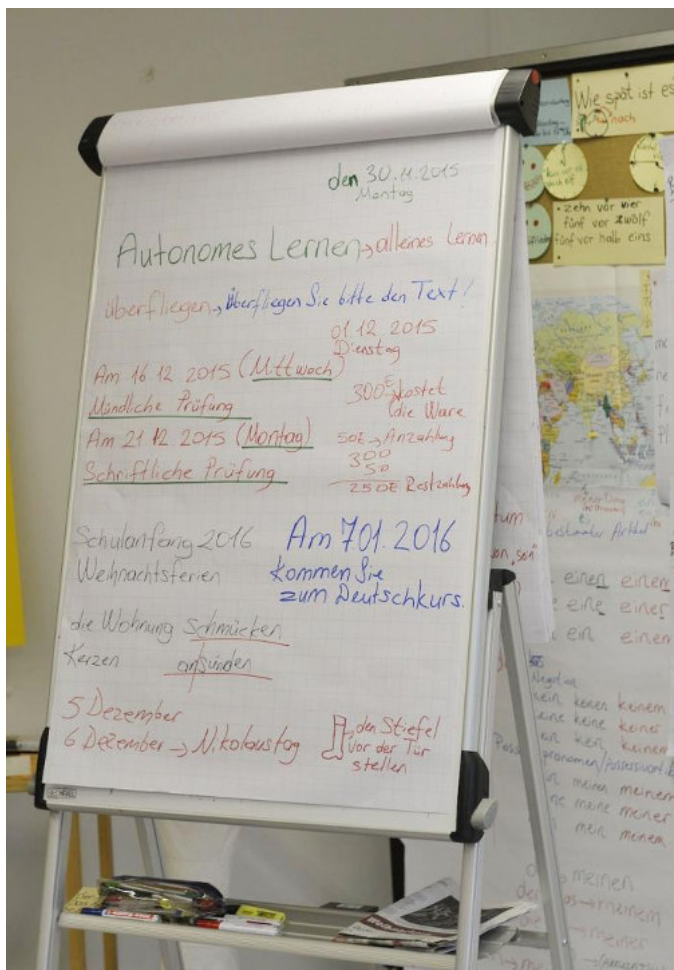 den 30.11.2015
Montag
Autonomes Lernen → alleines Lernen
überfliegen → Überfliegen Sie bitte den Text!
01.12 2015
Dienstag
Am 16 12 2015 (Mittwoch)
Mündliche Prüfung
300€ → kostet
die Ware
Am 21 12 2015 (Montag)
Schriftliche Prüfung
50€ → Anzahlung
300
50
250€ Restzahlung
Schulanfang 2016
Weihnachtsferien
Am 7 01. 2016
kommen Sie
zum Deutschkurs.
die Wohnung schmücken
Kerzen anzünden
5 Dezember
6 Dezember → Nikolaustag
→ den Stiefel
vor der Tür
stellen
Wie spät ist es
nach
zehn vor vier
fünf vor zwölf
fünf vor halb eins
bestimmter Artikel
einen einem
eine einer
ein einen
Negation
kein keinen keinem
keine keine keiner
kein kein keinen
meinen meinem
meine meiner
mein meinem
meinen
→ meinem
→ meiner